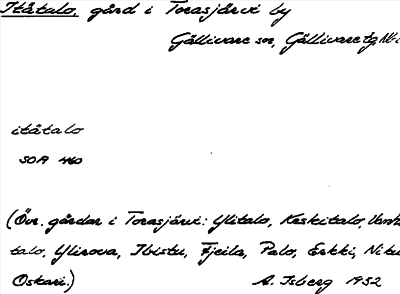 Itätalo, gård i Torasjärvi by
Gällivare sn, Gällivare tg, Nb
itätalo
SOA 460
(Övr. gårdar i Torasjärvi: Ylitalo, Keskitalo,
talo, Ylirova, Ibistu, Fjeila, Palo, Erkki,
Oskari.) A. Isberg 1952